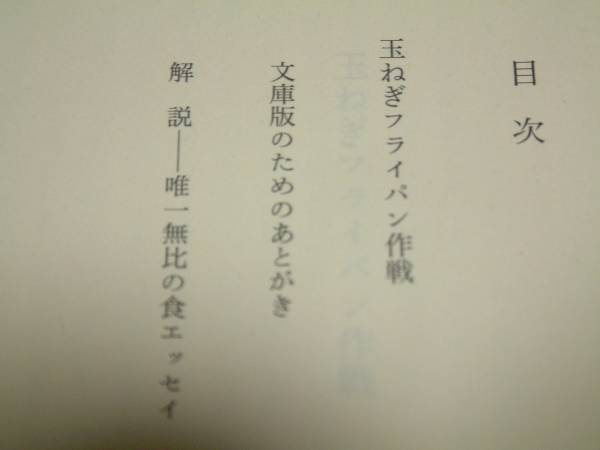 目次
玉ねぎフライパン作戦
文庫版のためのあとがき
解説――唯一無比の食エッセイ